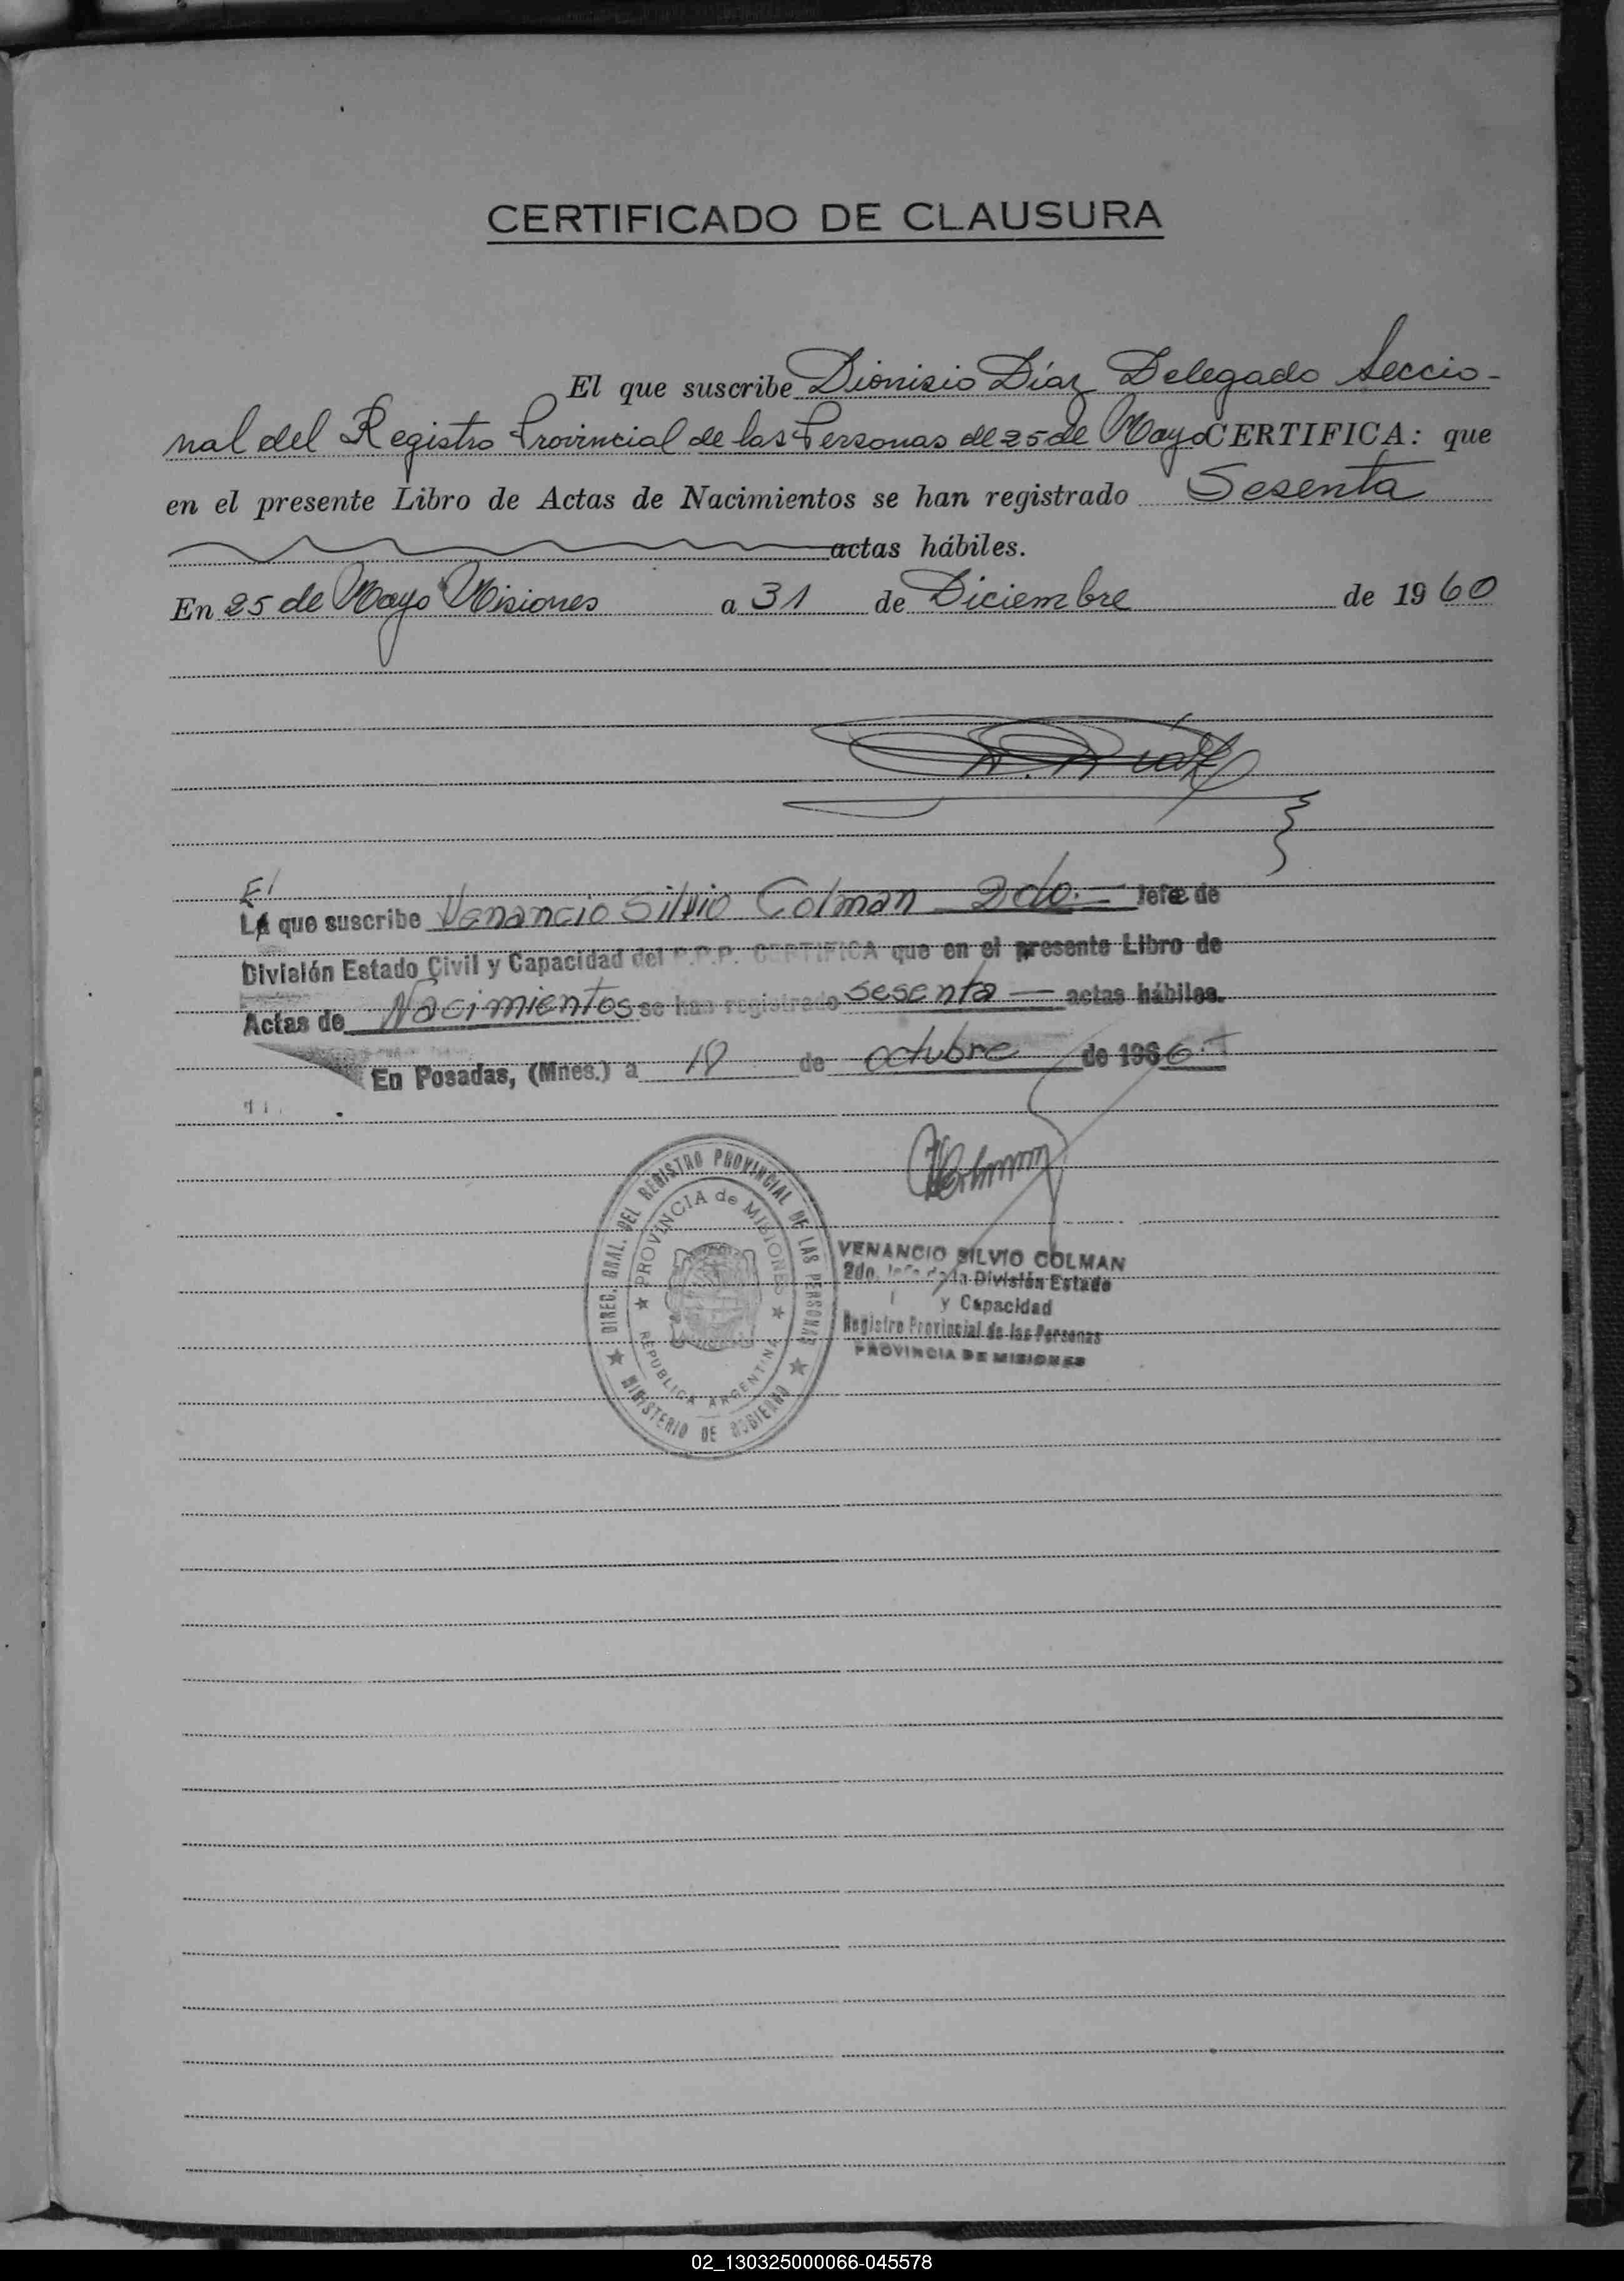 CERTIFICADO DE CLAUSURA
El que suscribe Dionisio Díaz Delegado Seccio-
nal del Registro Provincial de las Personas de 25 de Mayo CERTIFICA: que
en el presente Libro de Actas de Nacimientos se han registrado Sesenta
actas hábiles.
En 25 de Mayo Misiones a 31 de Diciembre de 1960
D. Díaz
El
La que suscribe Venancio Silvio Colman 2do. Jefe de
División Estado Civil y Capacidad del R.P.P. CERTIFICA que en el presente Libro de
Actas de Nacimientos se han registrado sesenta actas hábiles.
En Posadas, (Mnes.) a de octubre de 196
DIREC. GRAL. DEL REGISTRO PROVINCIAL DE LAS PERSONAS
PROVINCIA de MISIONES
REPUBLICA ARGENTINA
MINISTERIO DE GOBIERNO
VENANCIO SILVIO COLMAN
2do. Jefe de la División Estado
y Capacidad
Registro Provincial de las Personas
PROVINCIA DE MISIONES
02_130325000066-045578